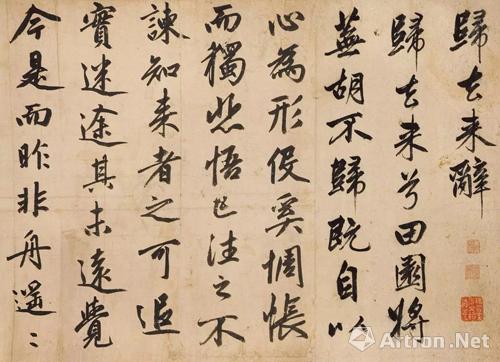 歸去来辭
歸去来兮田園將
蕪胡不歸既自以
心為形役奚惆悵
而獨悲悟已往之不
諫知来者之可追
實迷途其未遠覺
今是而昨非舟遥〻
雅昌艺术网
Artron.Net